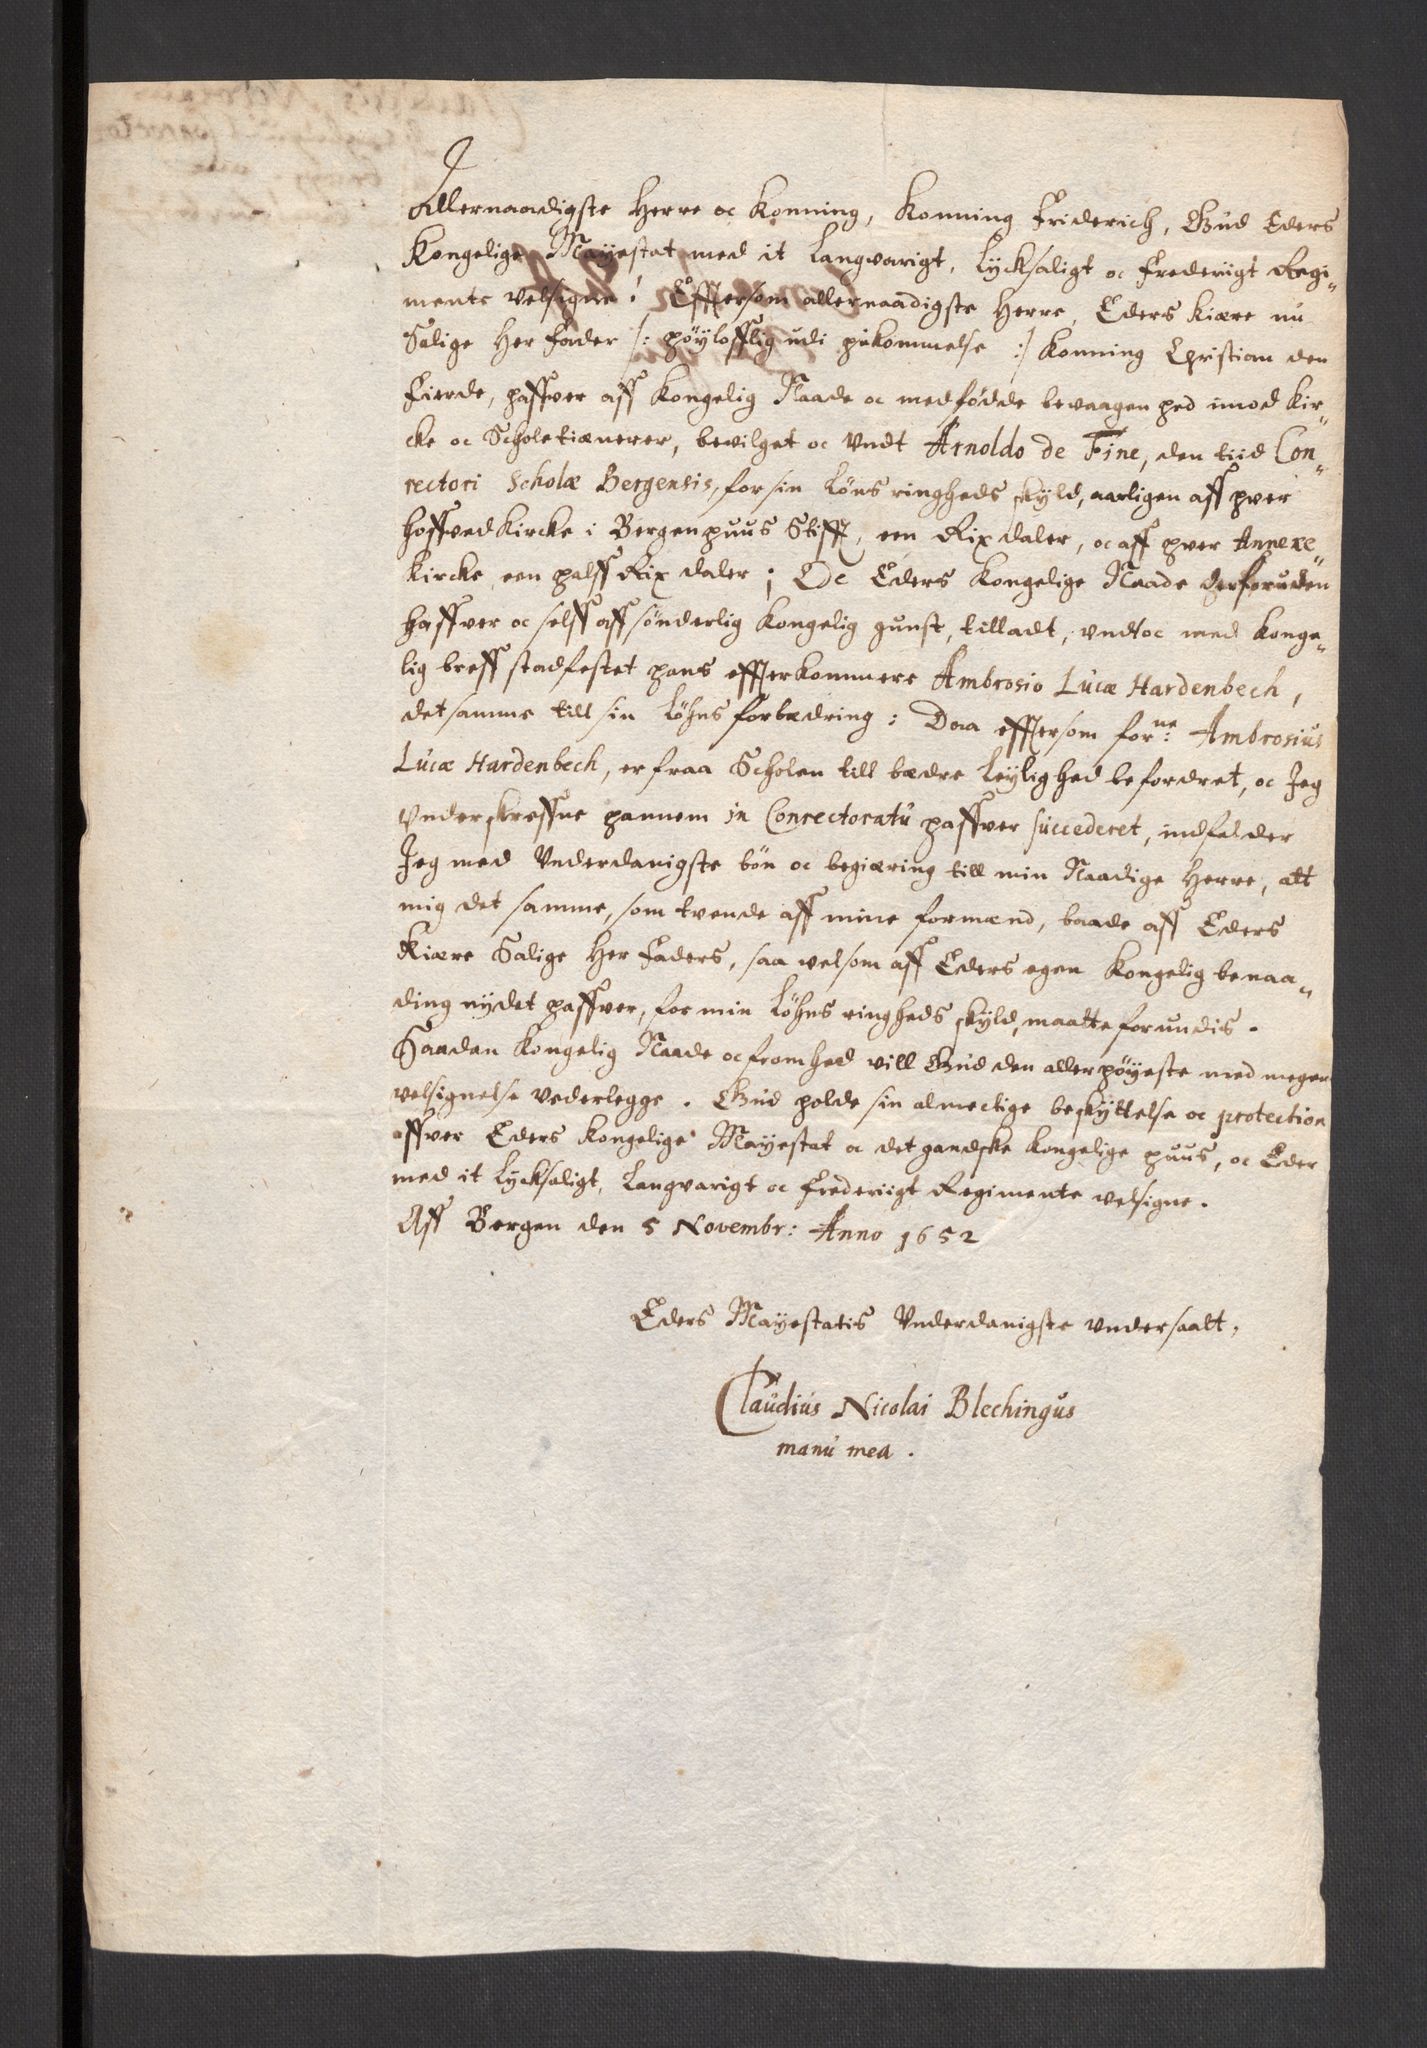 Allernaadigste Herre oc Konning, Konning Friderich, Gud Eders
Kongelige Mayestat med it Langvarigt, Lycksaligt oc Frederiigt Regi¬
mente velsigne! Effersom allernaadigste Herre, Eders kiære nu
Salige Her Fader /: høylofflig udi hukommelse :/ Konning Christian den
Fierde, haffver aff Kongelig Naade oc medfødde bevaagenhed imod Kir¬
cke oc Scholetiænerer, bevilget oc Undt Arnoldo de Fine, den tiid Con¬
rectori Scholæ Bergensis, for sin Löns ringheds skyld, aarligen aff hver
hoffvedkircke i Bergenhuus Stifft, een Rixdaler, oc aff hver Annexe¬
Kircke een halff Rixdaler; Oc Eders Kongelige Naade derforuden
haffver oc selff aff sönderlig Kongelig gunst, tilladt, undt oc med Konge¬
lig breff stadfestet hans effterkommere Ambrosio Lucæ Hardenbech,
det samme till sin Löhns forbædring: Daa effterson forne: Ambrosius
Lucæ Hardenbech, er fraa Scholen till bædre Leylighed befordret, oc Jeg
Underskreffne hannem in Conrectoratu haffver succederet, indfalder
Jeg med Underdanigste bön oc begiæring till min Naadige Herre, att
mig det samme, som tvende aff mine formænd, baade aff Eders
Kiære Salige Her Faders, saa velsom aff Eders egen Kongelig benaa¬
ding nydet haffver, for min Löhns ringheds skyld, maatte forundis.
Saadan Kongelig Naade oc fromhed vill Gud den allerhöyeste med megen
velsignelse vederlegge. Gud holde sin almectige beskyttelse oc protection
offver Eders Kongelige Mayestat oc det gandske Kongelige huus, oc Eder
med it Lycksaligt, Langvarigt oc Frederiigt Regimente velsigne.
Aff Bergen den 5 Novembr: Anno 1652
Eders Mayestatis Underdanigste undersaatt,
Claudius Nicolai Blechingus
manu mea.